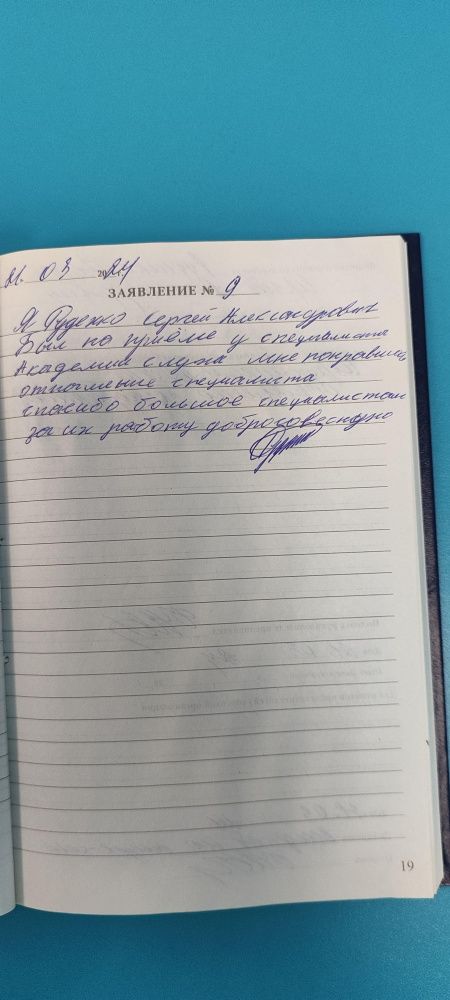 21. 03 2024 г.
ЗАЯВЛЕНИЕ № 9
Я Руденко Сергей Александрович
Был на приёме у специалиста
Академии слуха мне понравилось
отношение специалиста
спасибо большое специалистам
за их работу добросовестную
19